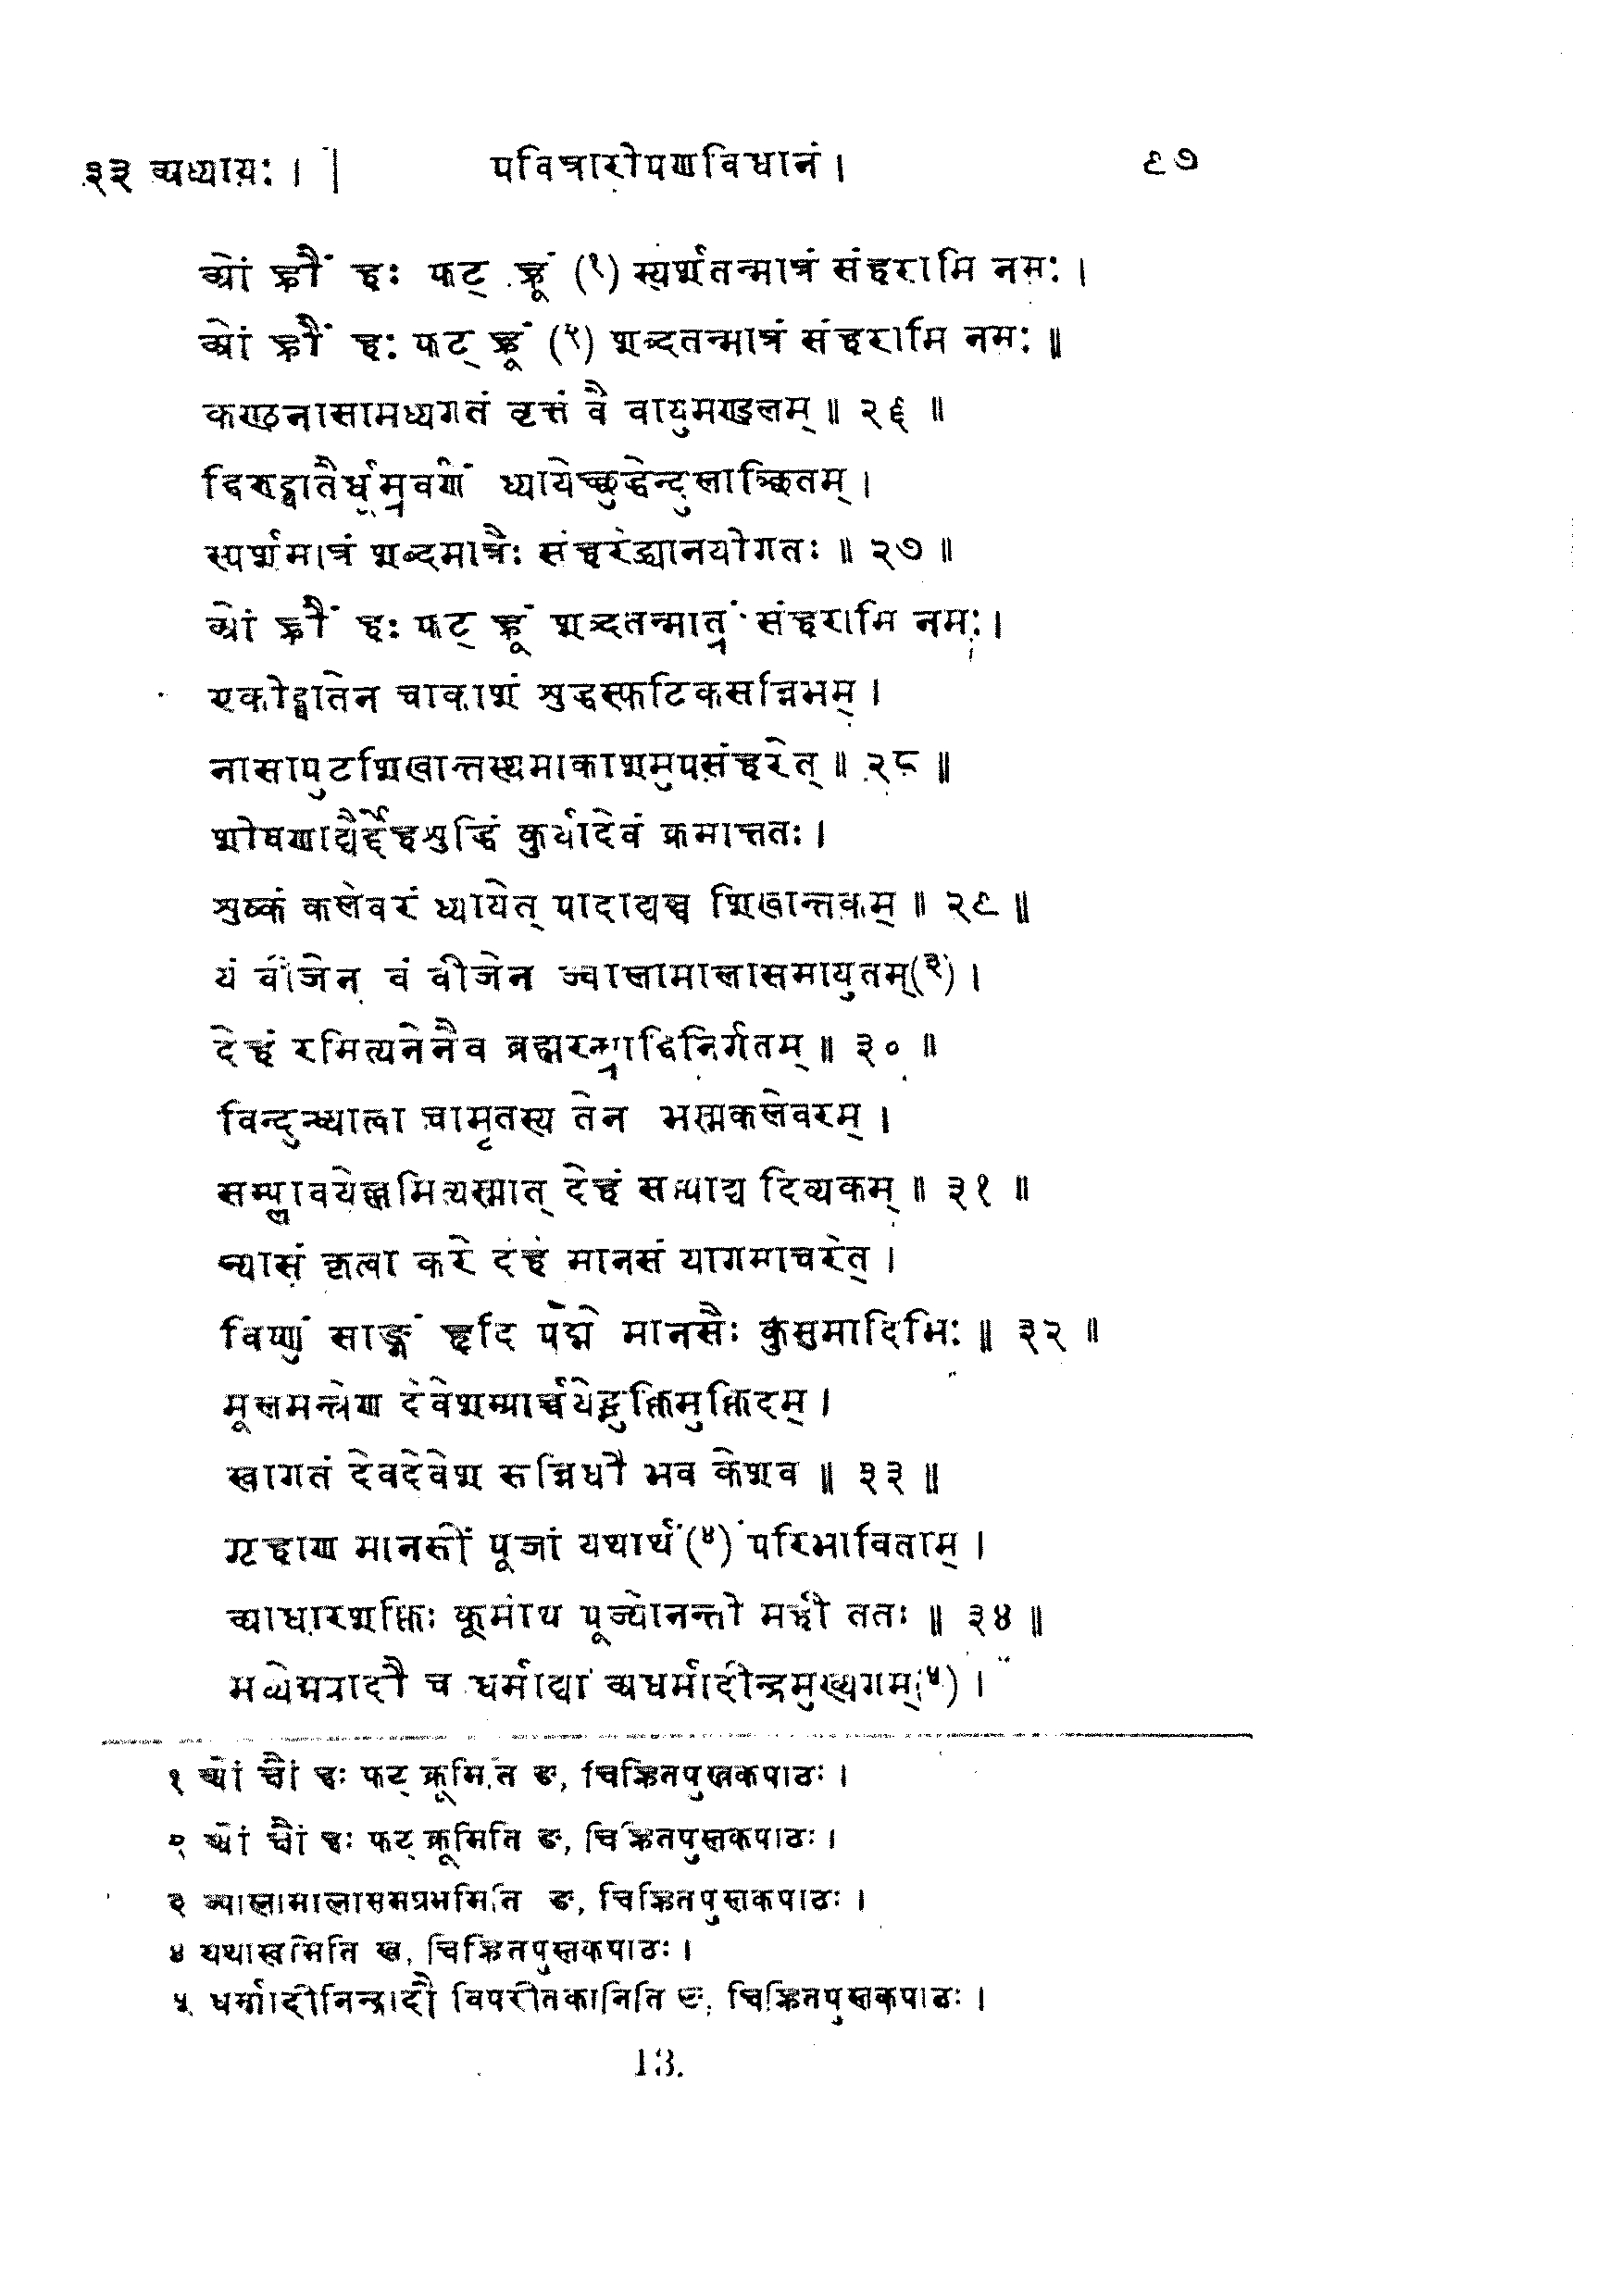 ३३ अध्यायः । पवित्रारोपणविधानं । ९७
ओं ह्रौं हः फट् ह्रूं (१) स्पर्शतन्मात्रं संहरामि नमः ।
ओं ह्रौं हः फट् ह्रूं (२) शब्दतन्मात्रं संहरामि नमः ॥
कण्ठनासामध्यगतं वृत्तं वै वायुमण्डलम् ॥ २६ ॥
द्विरुद्घातैर्धूम्रवर्णं ध्यायेच्छुद्धेन्दुलाञ्छितम् ।
स्पर्शमात्रं शब्दमात्रैः संहरेद्ध्यानयोगतः ॥ २७ ॥
ओं ह्रौं हः फट् ह्रूं शब्दतन्मात्रं संहरामि नमः ।
एकोद्घातेन चाकाशं शुद्धस्फटिकसन्निभम् ।
नासापुटशिखान्तस्थमाकाशमुपसंहरेत् ॥ २८ ॥
शोषणाद्यैर्द्देहशुद्धिं कुर्यादेवं क्रमात्ततः ।
शुष्कं कलेवरं ध्यायेत् पादाद्यञ्च शिखान्तकम् ॥ २९ ॥
यं वीजेन वं वीजेन ज्वालामालासमायुतम्(३) ।
देहं रमित्यनेनैव ब्रह्मरन्ध्राद्विनिर्गतम् ॥ ३० ॥
विन्दुन्ध्यात्वा चामृतस्य तेन भस्मकलेवरम् ।
सम्प्लावयेल्लमित्यस्मात् देहं सम्पाद्य दिव्यकम् ॥ ३१ ॥
न्यासं कृत्वा करे देहे मानसं यागमाचरेत् ।
विष्णुं साङ्गं हृदि पद्मे मानसैः कुसुमादिभिः ॥ ३२ ॥
मूलमन्त्रेण देवेशम्प्रार्च्चयेद्भुक्तिमुक्तिदम् ।
स्वागतं देवदेवेश सन्निधौ भव केशव ॥ ३३ ॥
गृहाण मानसीं पूजां यथार्थं(४) परिभाविताम् ।
आधारशक्तिः कूर्माथ पूज्योनन्तो मही ततः ॥ ३४ ॥
मध्येग्न्यादौ च धर्माद्या अधर्मादीन्द्रमुख्यगम्(५) ।
१ ओं क्षौं हः फट् क्रूमिति ङ, चिह्नितपुस्तकपाठः ।
२ ओं क्षौं हः फट् क्रूमिति ङ, चिह्नितपुस्तकपाठः ।
३ ज्वालामालासमप्रभमिति ङ, चिह्नितपुस्तकपाठः ।
४ यथास्वमिति ख, चिह्नितपुस्तकपाठः ।
५ धर्मादीनिन्द्रादौ विपरीतकानिति ङ, चिह्नितपुस्तकपाठः ।
13.